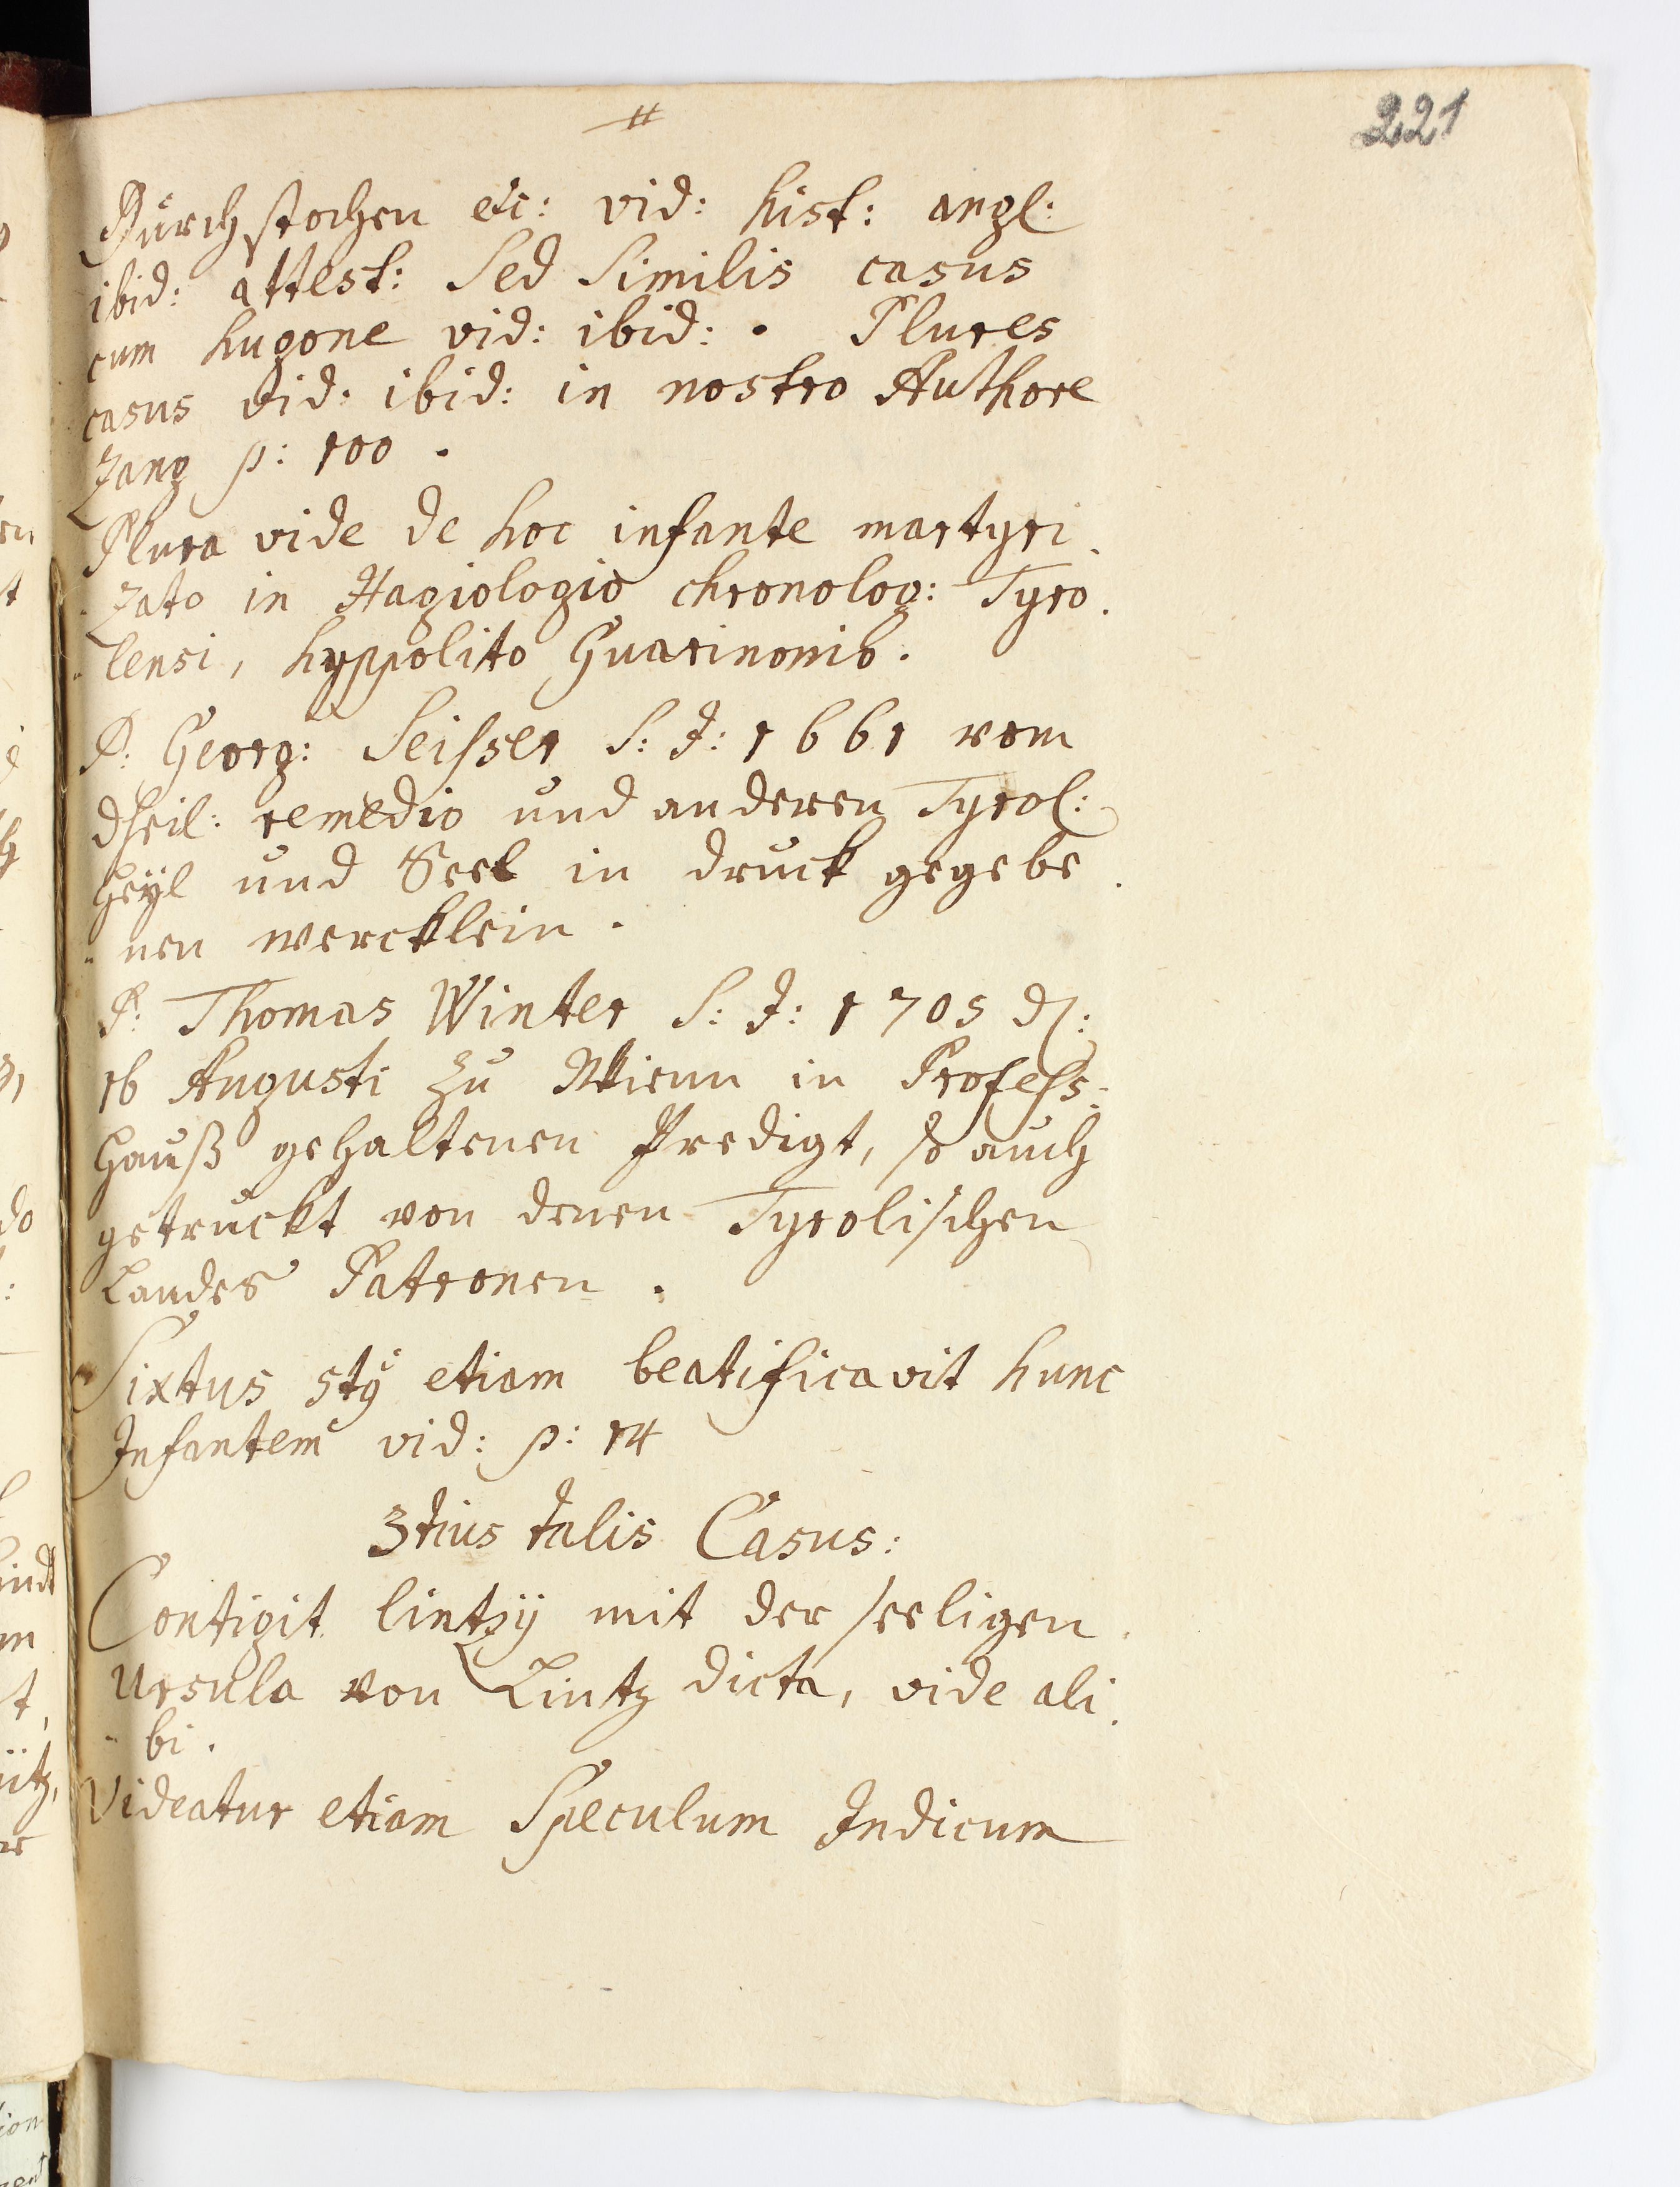 #
221
Durchstochen etc: vid: hist: angl:
ibid: attest: Sed Similis casus
cum hugone vid: ibid: . Plures
casus vid: ibid: in nostro Authore
Zang p: 100 .
Plura vide de hoc infante martyri.
.zato in Hagiologio chronolog: Tyro.
.lensi, hyppolito Guarinonib.
P: Georg: Seisser S: J: 1661 vom
dheil: remedio und anderen Tyrol:
heyl und Seel in druck gegebe.
.nen wercklein .
P: Thomas Winter S: J: 1705 d:
16 Augusti zu Wienn in Profess:
hauß gehaltenen Predigt, so auch
getruckt von denen Tyrolischen
Landes Patronen .
Sixtus 5tg etiam beatificavit hunc
Infantem vid: p: 14
3tius talis Casus:
Contigit lintzÿ mit der seeligen
Ursula von Lintz dicta, vide ali.
. bi .
Videatur etiam Speculum Judicum